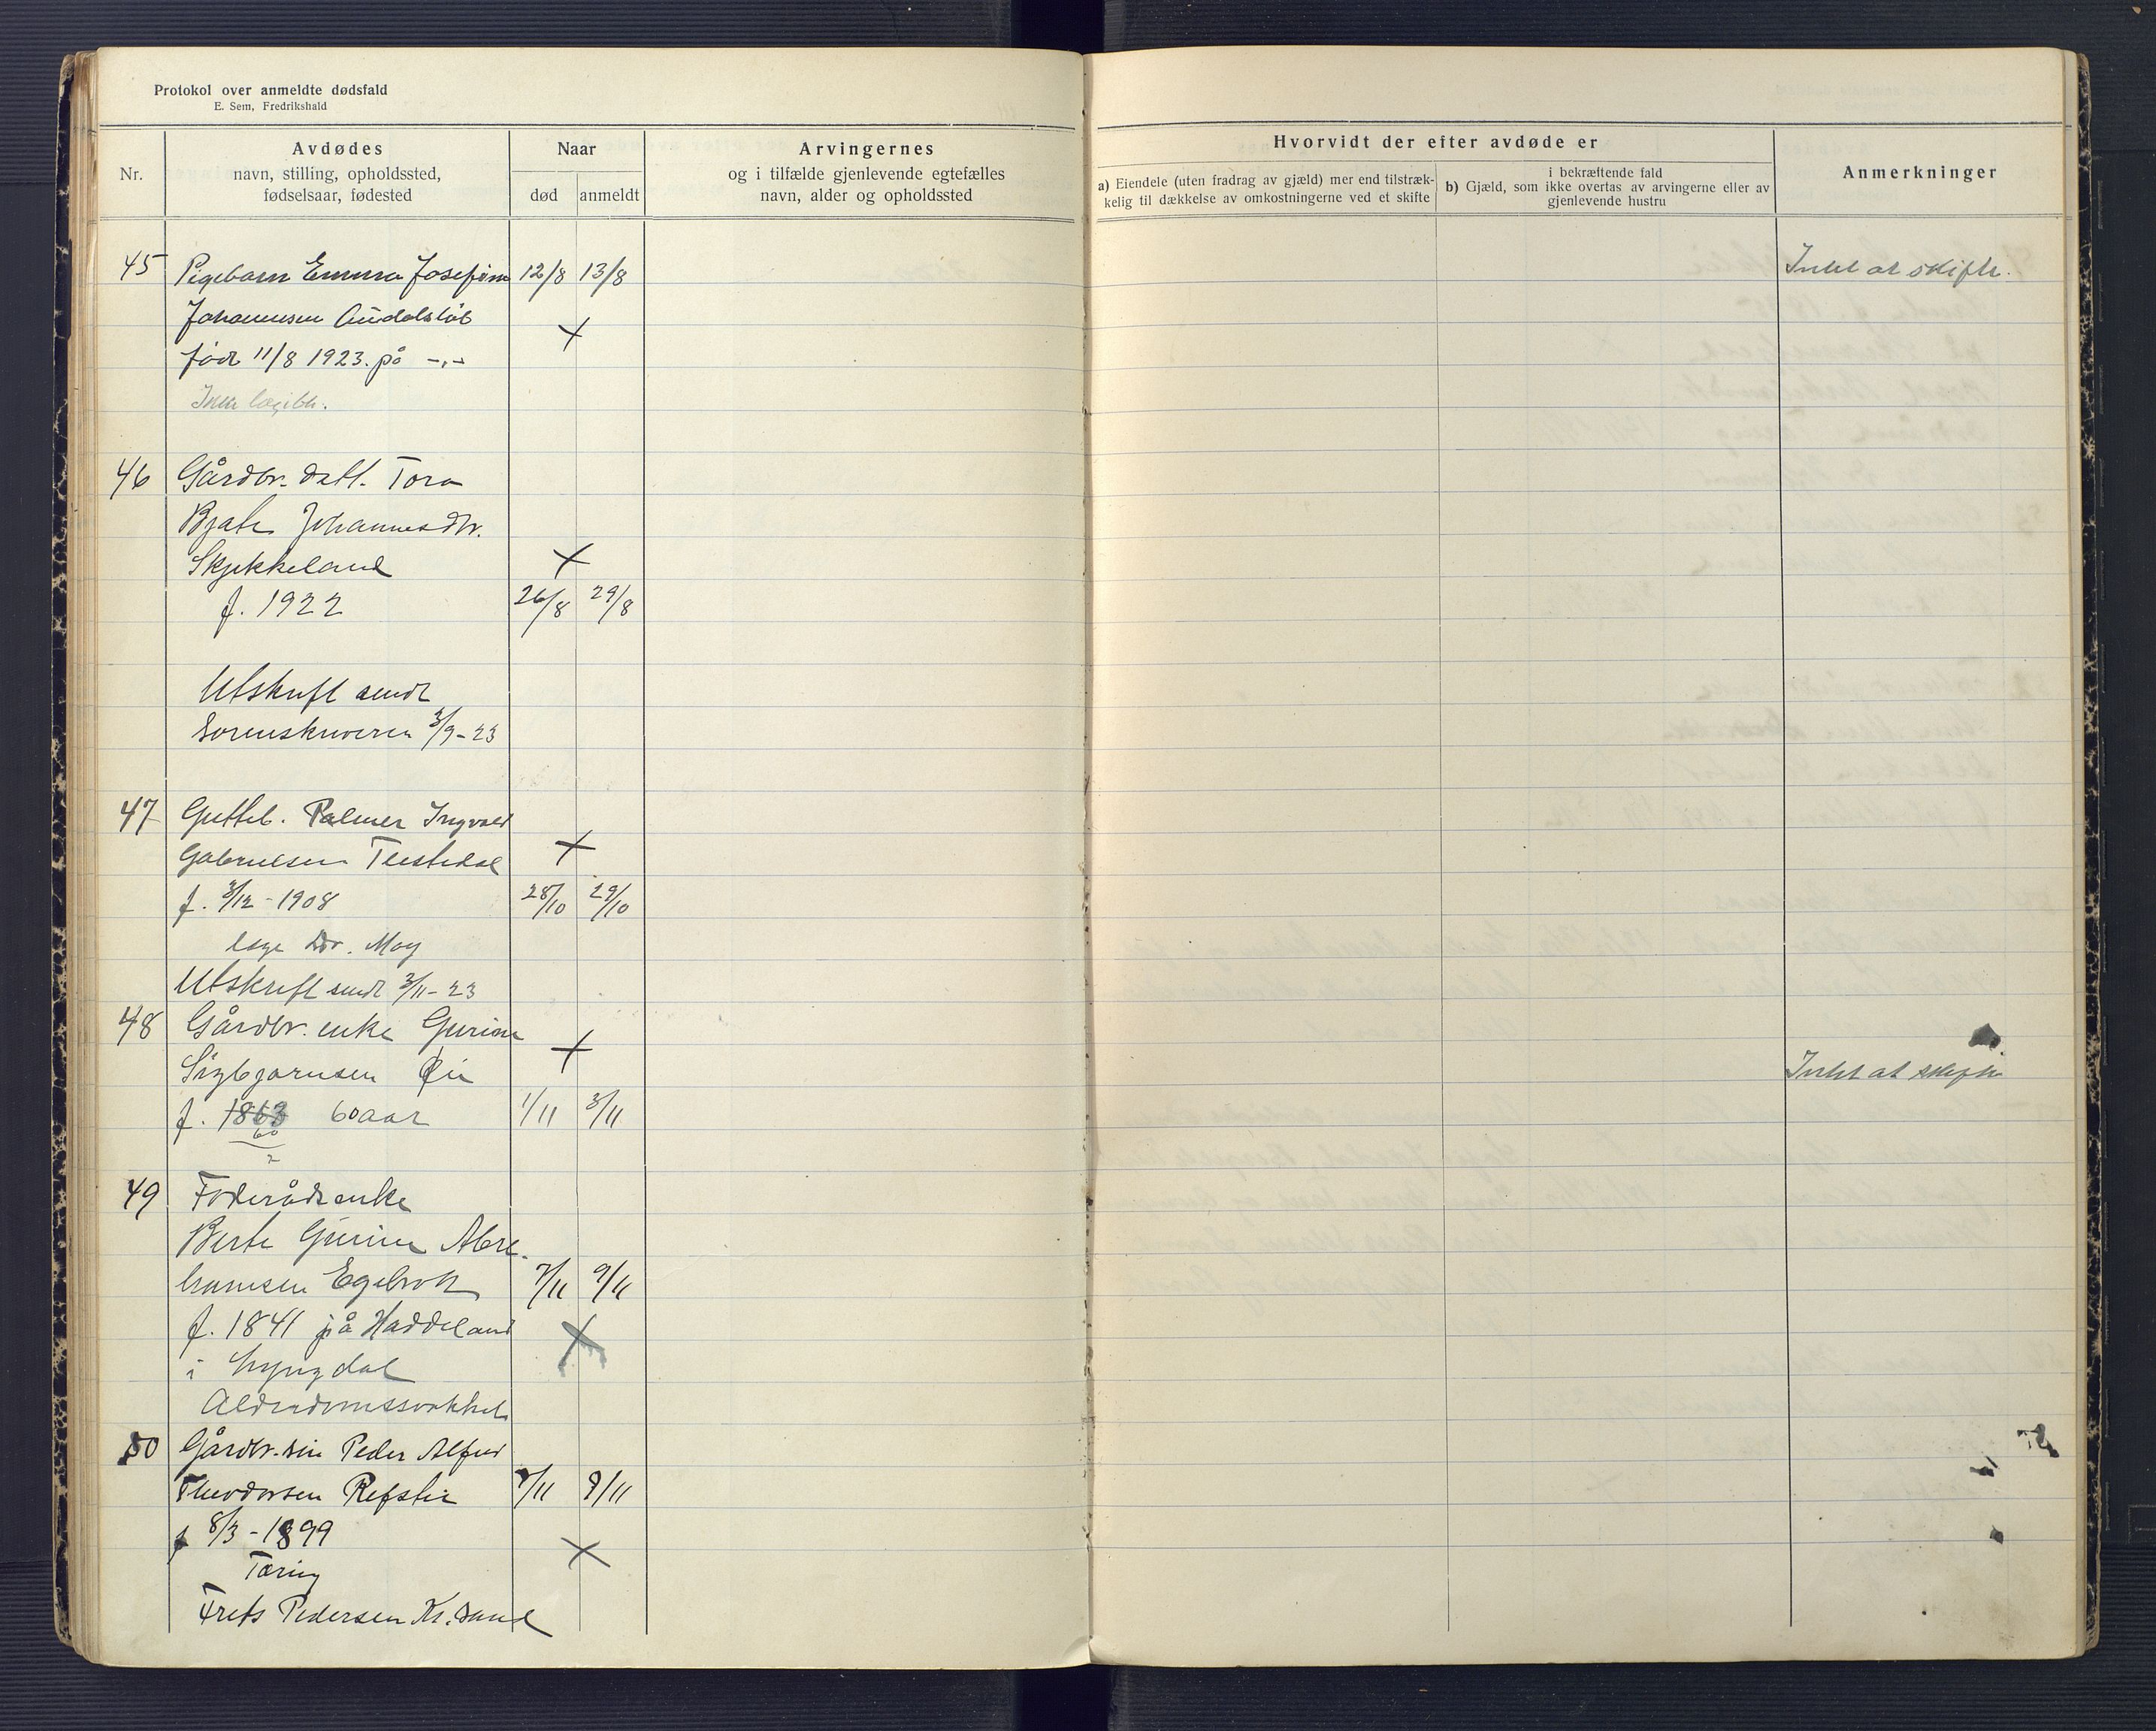 Protokol over anmeldte dødsfald
E. Sem, Fredrikshald
Nr.
Avdødes
navn, stilling, opholdssted,
fødselsaar, fødested
Naar
død
anmeldt
Arvingernes
og i tilfælde gjenlevende egtefælles
navn, alder og opholdssted
Hvorvidt der efter avdøde er
a) Eiendele (uten fradrag av gjæld) mer end tilstræk-
kelig til dækkelse av omkostningerne ved et skifte
i bekræftende fald
b) Gjæld, som ikke overtas av arvingerne eller av
gjenlevende hustru
Anmerkninger
45 Pigebarn Emma Josefine 12/8 13/8 Intet at skifte.
Johannesen
født 11/8 1923. på -„-
Ikke
46 Gårdbr. datt. Tora
Johannesdtr.
Skjekkeland
f. 1922 26/8 29/8
Utskrift sendt
Sorenskriveren 3/9-23
47 Gutteb. Palmer Ingvald
Gabrielsen
f. 3/12-1908 28/10 29/10
læge Dr. Moy
Utskrift sendt 3/11-23
48 Gårdbr. enke Gurine
Sigbjørnsen Intet at skifte
f. 1863 60 aar 1/11 3/11
60
49 Føderådsenke
Berte Gurine Abra-
hamsen Egebrok 7/11 9/11
f. 1841 på Haddeland
i Lyngdal
Alderdomssvakhet
50 Gårdbr. søn Peder Alfred
Theodorsen Refstie 7/11 9/11
f 8/3-1899
Tæring
Frets Pedersen Kr.sand